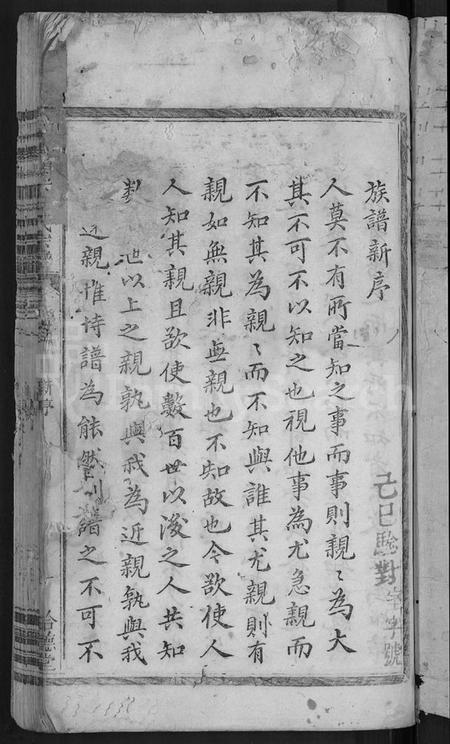 族譜新序
人莫不有所當知之事而事則親〻為大
其不可不以知之也視他事為尤急親而
不知其為親〻而不知與誰其尤親則有
親如無親非無親也不知故也今欲使人
人知其親且欲使數百世以後之人共知
數 世以上之親孰與我為近親孰與我
近親惟恃譜為能然則譜之不可不
己巳驗對 字 號
新序